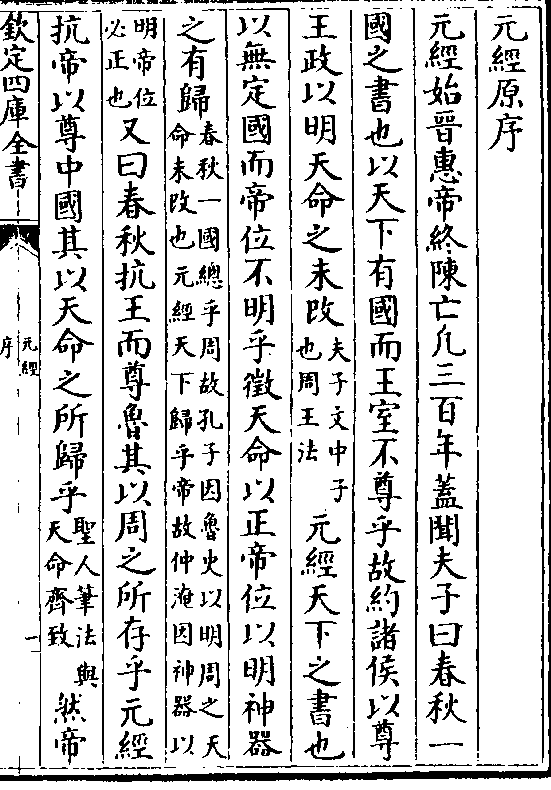 元經原序
元經始晉惠帝終陳亡凡三百年蓋聞夫子曰春秋一
國之書也以天下有國而王室不尊乎故約諸侯以尊
王政以明天命之未改夫子文中子也周王法元經天下之書也
以無定國而帝位不明乎徵天命以正帝位以明神器
之有歸春秋一國總乎周故孔子因魯史以明周之天命未改也元經天下歸乎帝故仲淹因神器以
明帝位必正也又曰春秋抗王而尊魯其以周之所存乎元經
抗帝以尊中國其以天命之所歸乎聖人筆法與天命齊致然帝
欽定四庫全書
元經
序
一